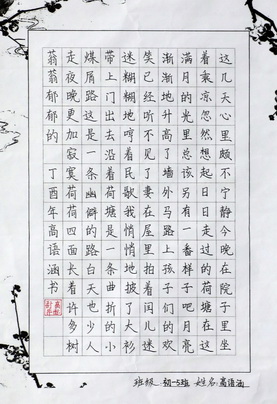 这几天心里颇不宁静今晚在院子里坐
着乘凉忽然想起日日走过的荷塘在这
满月的光里总该另有一番样子吧月亮
渐渐地升高了墙外马路上孩子们的欢
笑已经听不见了妻在屋里拍着闰儿迷
迷糊糊地哼着民歌我悄悄地披了大衫
带上门出去沿着荷塘是一条曲折的小
煤屑路这是一条幽僻的路白天也少人
走夜晚更加寂寞荷荷四面长着许多树
蓊蓊郁郁的 丁酉年高语涵书
班级：初一5班 姓名：高语涵